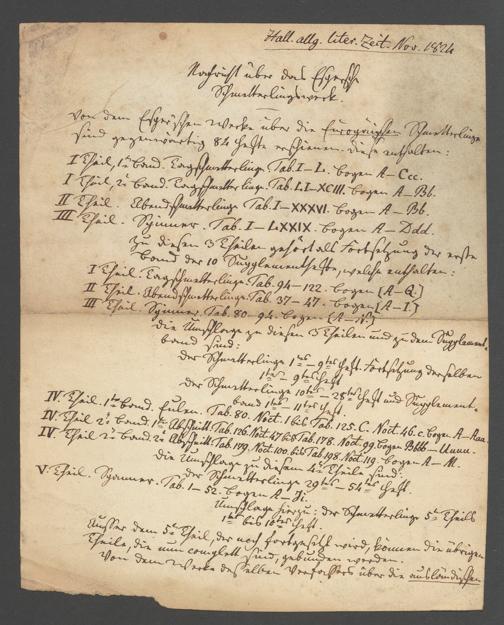 Hall. allg. liter. Zeit. Nov. 1824
Nachricht über das Espersche
Schmetterlingswerk.
Von dem Esperschen Werke über die Europäischen Schmetterlinge
sind gegenwärtig 84 Hefte erschienen. Diese enthalten:
I Theil, 1r Band. Tagschmetterlinge. Tab. I–L. Bogen A–Ccc.
I Theil, 2r Band. Tagschmetterlinge. Tab. LI–XCIII. Bogen A–Bb.
II Theil. Abendschmetterlinge. Tab. I–XXXVI. Bogen A–Bb.
III Theil. Spinner. Tab. I–LXXIX. Bogen A–Ddd.
Zu diesen 3 Theilen gehört als Fortsetzung der erste
Band der 10 Supplementhefte, welche enthalten:
I Theil. Tagschmetterlinge. Tab. 94–122. Bogen [A–Q.]
II Theil. Abendschmetterlinge. Tab. 37–47. Bogen [A–I.]
III Theil. Spinner. Tab. 80–94. Bogen [A–N.]
die Umschläge zu diesen 3 Theilen und zu dem Supplement-
band sind:
der Schmetterlinge 1tes–9tes Heft. Fortsetzung derselben
1tes–9tes Heft
der Schmetterlinge 10tes–28tes Heft und Supplement-
band 1tes–11tes Heft.
IV. Theil. 1ter Band. Eulen. Tab. 80. Noct. 1 bis Tab. 125. C. Noct. 46. c. Bogen A–Aaa.
IV. Theil 2r Band. 1r Abschnitt. Tab. 126. Noct. 47 bis Tab. 178. Noct. 99. Bogen Bbb–Uuuu.
IV. Theil 2r Band. 2r Abschnitt. Tab. 179. Noct. 100. bis Tab. 198. Noct. 119. Bogen A–M.
die Umschläge zu diesem 4ten Theile sind:
der Schmetterlinge 29tes–54tes Heft.
V. Theil. Spanner. Tab. 1–52. Bogen A–Ji.
Umschläge hierzu: der Schmetterlinge 5ten Theils
1tes bis 10tes Heft.
Ausser dem 5ten Theil, der noch fortgesetzt wird, können die übrigen
Theile, die nun complett sind, gebunden werden.
Von dem Werke desselben Verfassers über die ausländischen